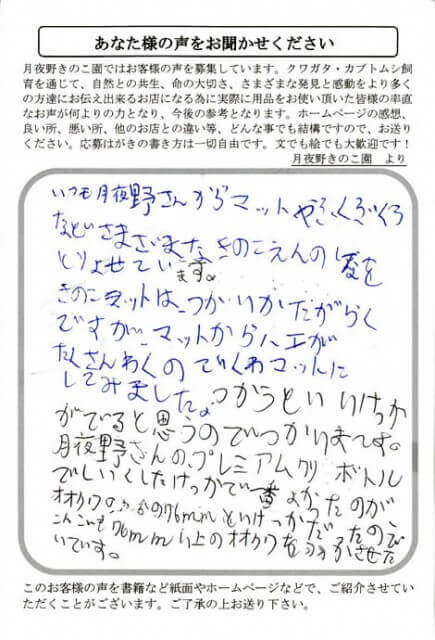 あなた様の声をお聞かせください
月夜野きのこ園ではお客様の声を募集しています。クワガタ・カブトムシ飼
育を通じて、自然との共生、命の大切さ、さまざまな発見と感動をより多く
の方達にお伝え出来るお店になる為に実際に用品をお使い頂いた皆様の率直
なお声が何よりの力となり、今後の参考となります。ホームページの感想、
良い所、悪い所、他のお店との違い等、どんな事でも結構ですので、お送り
ください。応募はがきの書き方は一切自由です。文でも絵でも大歓迎です！
月夜野きのこ園　より
いつも月夜野さんからマットや
などさまざまなきのこえんの
とりよせています。
きのこマットは、つかいかたがらく
ですが、マットからハエが
たくさんわくのでくわマットに
してみました。つかうといいけっか
がでると思うのでつかいます。
月夜野さんの、プレミアムクリーボトル
でしいくしたけっかで一番よかったのが
オオクワの76mmといけっかだったので
こんども76mm以上のオオクワを
いです。
このお客様の声を書籍など紙面やホームページなどで、ご紹介させてい
ただくことがございます。ご了承の上お送り下さい。